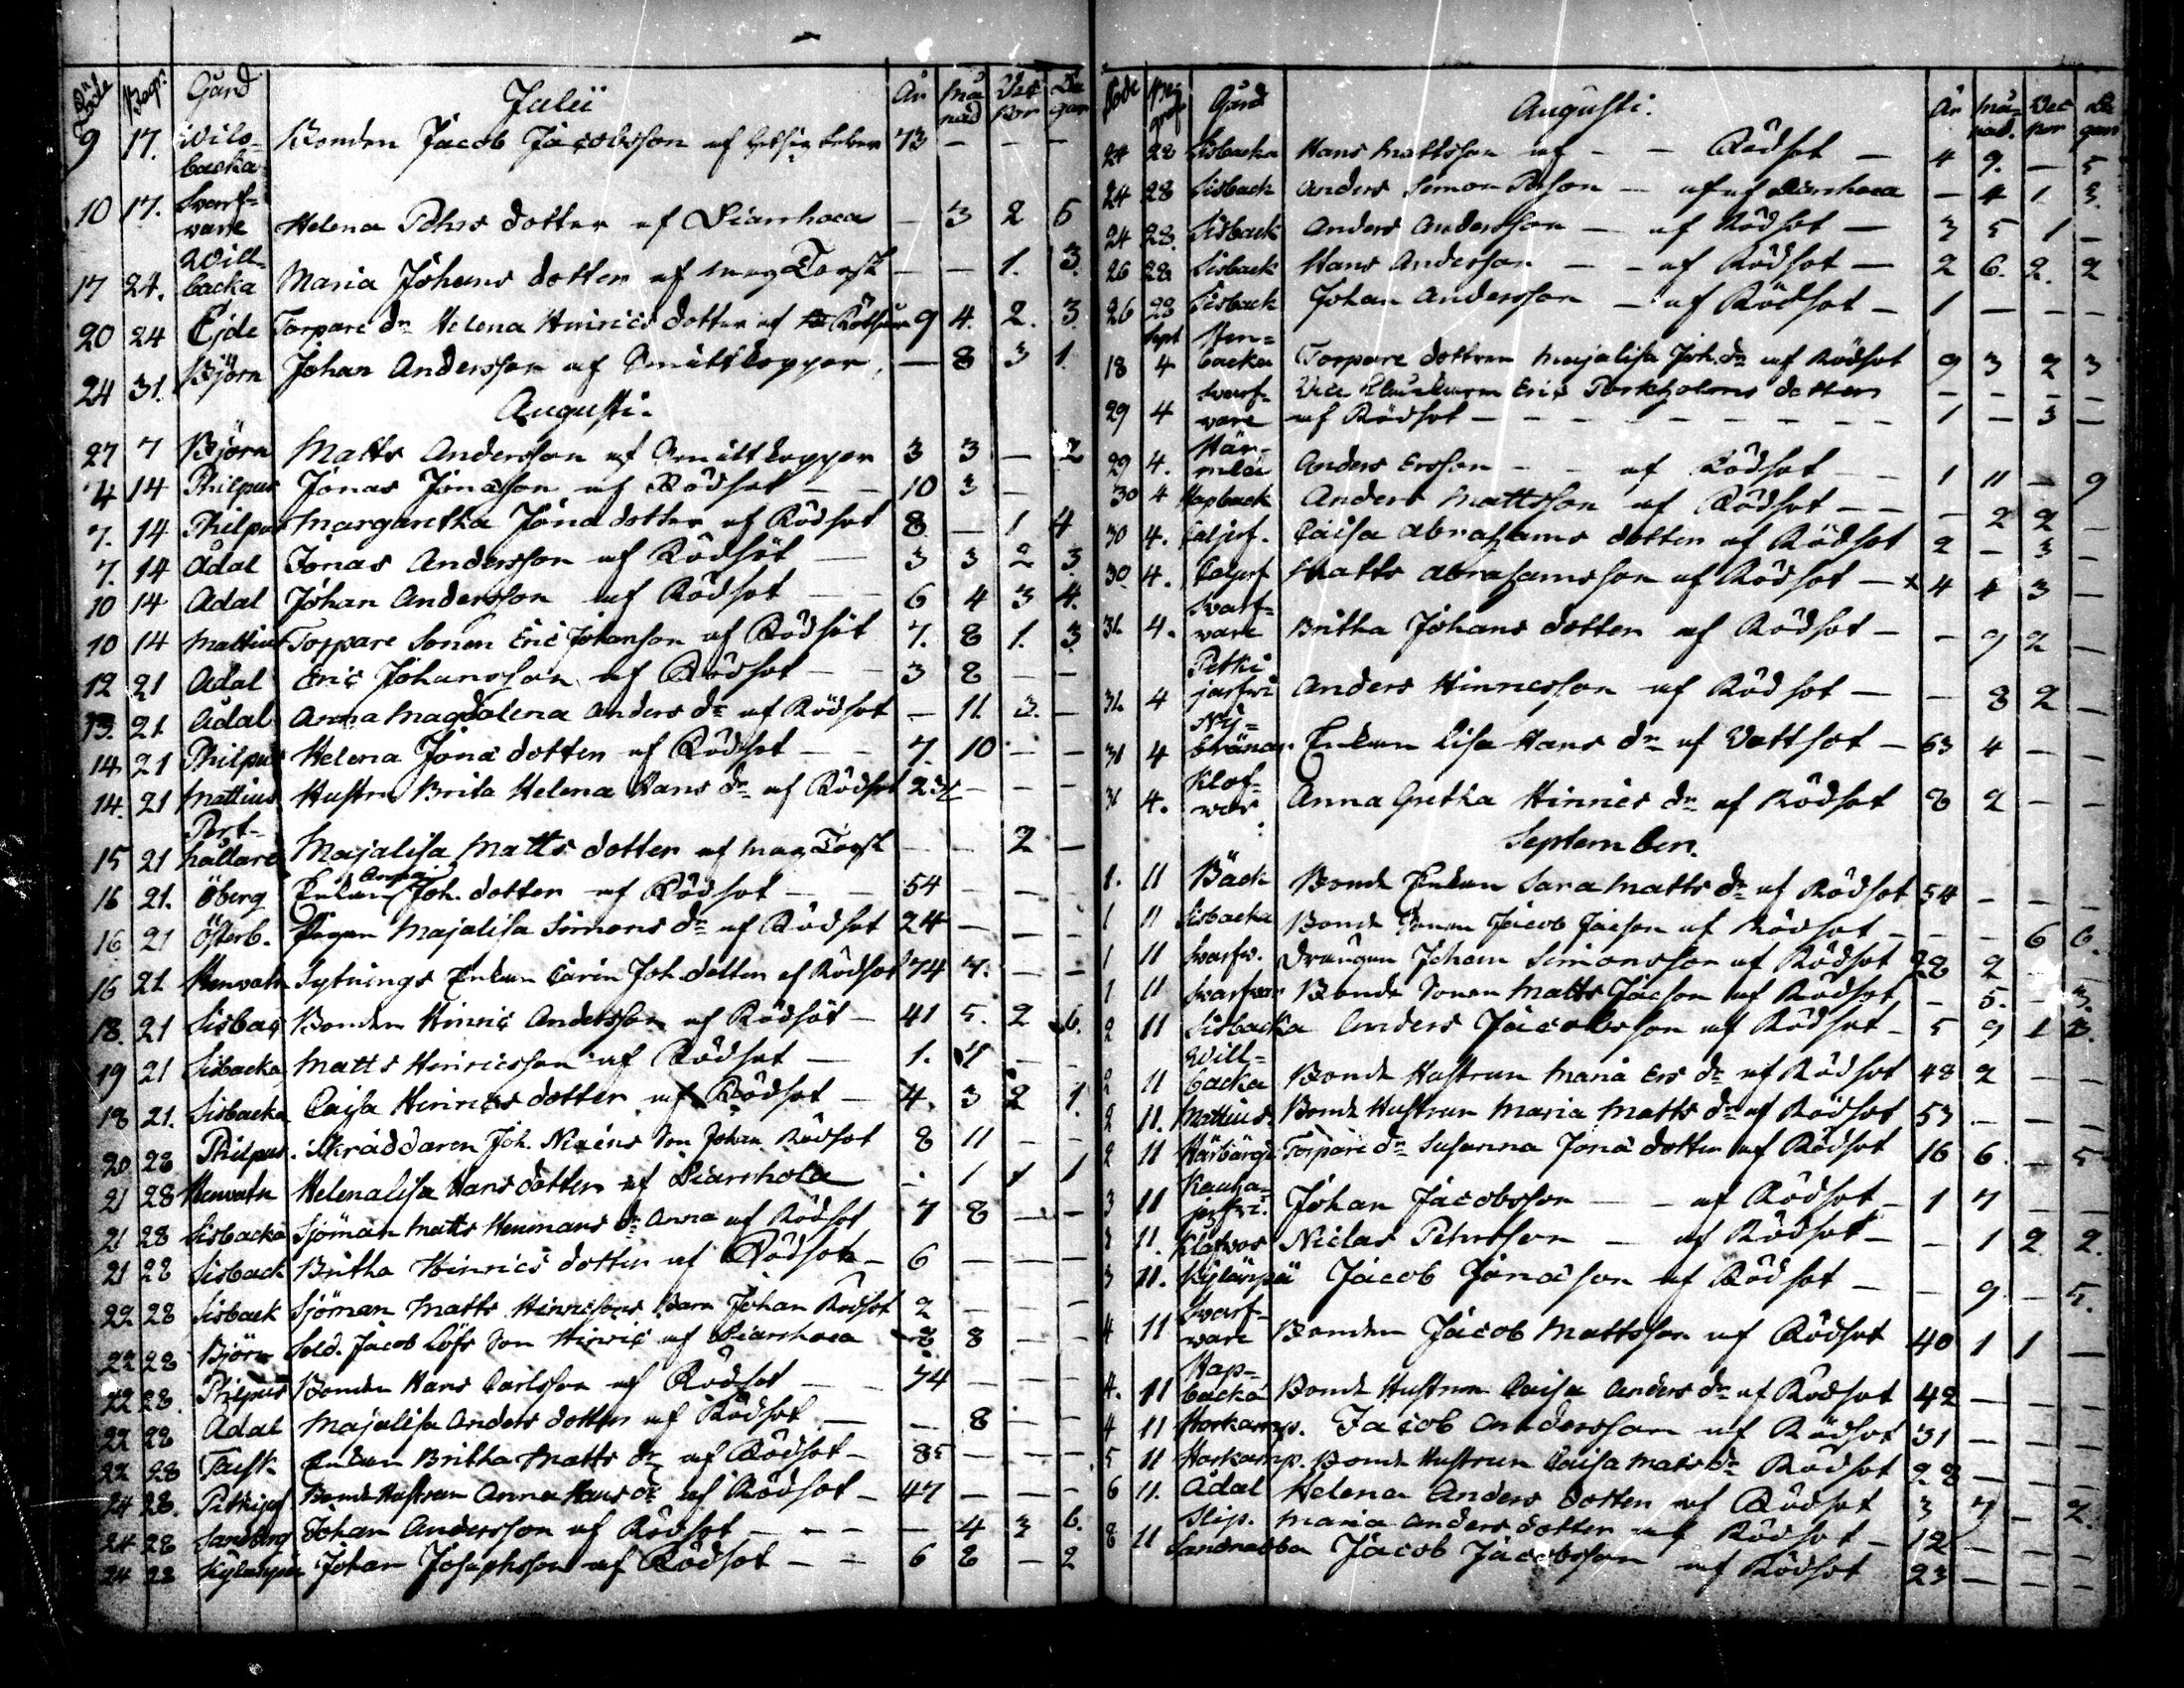 Döde Begr. Gård Julii År Månad Veckor Dagar
9 17. Wils- Bonden Jacob Jacobsson af 73 — — —
backa
10 17. Swarf-
vare Helena Pehrs dotter af Diarrhoea — 3 2 5
Will-
17 24. backa Maria Johans dotter af — — 1. 3.
20 24 Ejde Torpare dr Helena Hinrics dotter af 9 4. 2. 3.
24 31. Björn Johan Andersson af Smittkoppor — 8 3 1.
Augusti.
27 7 Björn Matts Andersson af Smittkoppor 3 3 — 2
4 14 Philpus Jonas Jonasson af Rödsot — — 10 3 —
7. 14 Philpus Margaretha Jona dotter af Rödsot 8 — 1 4
7. 14 Ådal Jonas Andersson af Rödsot — 3 3 2 3
10 14 Ådal Johan Andersson af Rödsot — — 6 4 3 4.
10 14 Mattius Torpare Sonen Eric Johansson af Rödsot 7. 8 1. 3.
12 21 Ådal Eric Johansson af Rödsot — — 3 8 — —
13. 21. Ådal Anna Magdalena Anders dr af Rödsot — 11. 3. —
14 21 Philpus Helena Jona dotter af Rödsot — — 7. 10 — —
14. 21 Mattius Hustru Brita Helena Hans dr af Rödsot 23 — — —
Port-
15 21 hållare Majalisa Matts dotter af — — 2 —
Anna
16 21. Öberg Enkan Joh. dotter af Rödsot — — 54 — — —
16 21 Österb. Pigan Majalisa Simons dr af Rödsot 24 — — —
16 21. Sytnings Enkan Carin Joh dotter af Rödsot 74 7. — —
18. 21 Sisbac Bonden Hinric Andersson af Rödsot — 41 5. 2 6.
19 21 Sisbacka Matts Hinricsson af Rödsot — 1. 11 — —
18 21. Sisbacka Caisa Hinrics dotter af Rödsot — 4. 3 2 1.
20 28 Philpus. Skräddaren Joh. son Johan Rödsot 8 11 — —
21 28 Helenalisa Hans dotter af Diarrhoea — 1 1 1
21 28 Sisbacka Sjöman Matts dr Anna af Rödsot 7 8 — —
21 28 Sisback Britha Hinrics dotter af Rödsot — 6 — — —
22 28 Sisback Sjöman Matts Hinricsons Barn Johan Rödsot 2 — —
22 28 Björn Sold. Jacob Löfs Son Hinric af Diarrhoea 8 — —
22 28. Philpus Bonden Hans Carlsson af Rödsot — 74 — — —
22 28 Ådal Majalisa Anders dotter af Rödsot — — 8 — —
22 28 Enkan Britha Matts dr af Rödsot — 85 — — —
24 28. Bonde Hustrun Anna Hans dr af Rödsot — 47 — — —
24 28 Sandberg Johan Andersson af Rödsot — — — 4 3 6.
24 28 Johan Josephsson af Rödsot — — 6 8 — 2
Döde Begraf Gård Augusti. År Månad. Veckor Dagar
24 28 Sisbacka Hans Mattsson af — — Rödsot — 4 9. — 5
24 28 Sisback Anders Simon — af Diarrhoea — 4 1 3.
24 28. Sisback Anders Andersson — af Rödsot — 3 5 1 —
26 28 Sisback Hans Andersson — — af Rödsot — 2 6. 2. 2
26 28 Sisback Johan Andersson — af Rödsot — 1 — — —
Sept
18 4 backa Torpare dottren Majalisa Joh. dr af Rödsot 9 3 2 3
Swarf- Eric dotter — — — —
29 4 vare af Rödsot — — — — 1 — 3 —
29 4. Anders Ersson — — af Rödsot — 1 11 — 9
30 4 Hapback Anders Mattsson af Rödsot — — — 2 2 —
30 4. Caisa Abrahams dotter af Rödsot 2 — 3 —
30 4. Matts Abrahamsson af Rödsot — 4 4 3 —
Swarf-
31 4. vare Britha Johans dotter af Rödsot — — 9 2 —
Petki
31 4 jarfwi Anders Hinricsson af Rödsot — — 8 2 —
Ny-
31 4 Enkan Lisa Hans dr af Vattsot — 63 4 — —
Klof-
31 4. war Anna Gretha Hinrics dr af Rödsot 8 2 — —
September.
1. 11 Bäck Bonde Enkan Sara Matts dr af Rödsot 54 — — —
1 11 Sisbacka Bonde Sonen Jacob Jacson af Rödsot — — — 6 6.
1 11 Swarfw. Drängen Johan Simonsson af Rödsot 28 2 — —
1 11 Swarfvar Bonde Sonen Matts Jacson af Rödsot — 5. — 3.
2 11 Sisbacka Anders Jacobsson af Rödsot — 5 9 1 3.
Will-
2 11 backa Bonde Hustrun Maria Ers dr af Rödsot 48 2 — —
2 11. Mattius. Bonde Hustrun Maria Matts dr af Rödsot 53 — — —
2 11 Härbärge Torpare dr Susanna Jona dotter af Rödsot 16 6 — 5
Kauha-
3 11 jerfvi. Johan Jacobsson — — af Rödsot — 1 7 — —
3 11. Niclas Pehrsson — af Rödsot — — 1 2. 2.
3 11. Kylänpä Jacob Jonasson af Rödsot — — 9 — 5.
Swarf-
4 11 vare Bonden Jacob Mattsson af Rödsot 40 1 1 —
Hap-
4. 11 backa Bonde Hustrun Caisa Anders dr af Rödsot 42 — — —
4 11 Horkamp. Jacob Andersson af Rödsot 31 — — —
5 11 Horkamp. Bonde Hustrun Caisa Mats dr Rödsot 28 — — —
6 11. Ådal Helena Anders dotter af Rödsot 3 7 — 2.
Slip. Maria Anders dotter af Rödsot — 12 — — —
8 11 Sandnabba Jacob Jacobsson af Rödsot 23 — — —